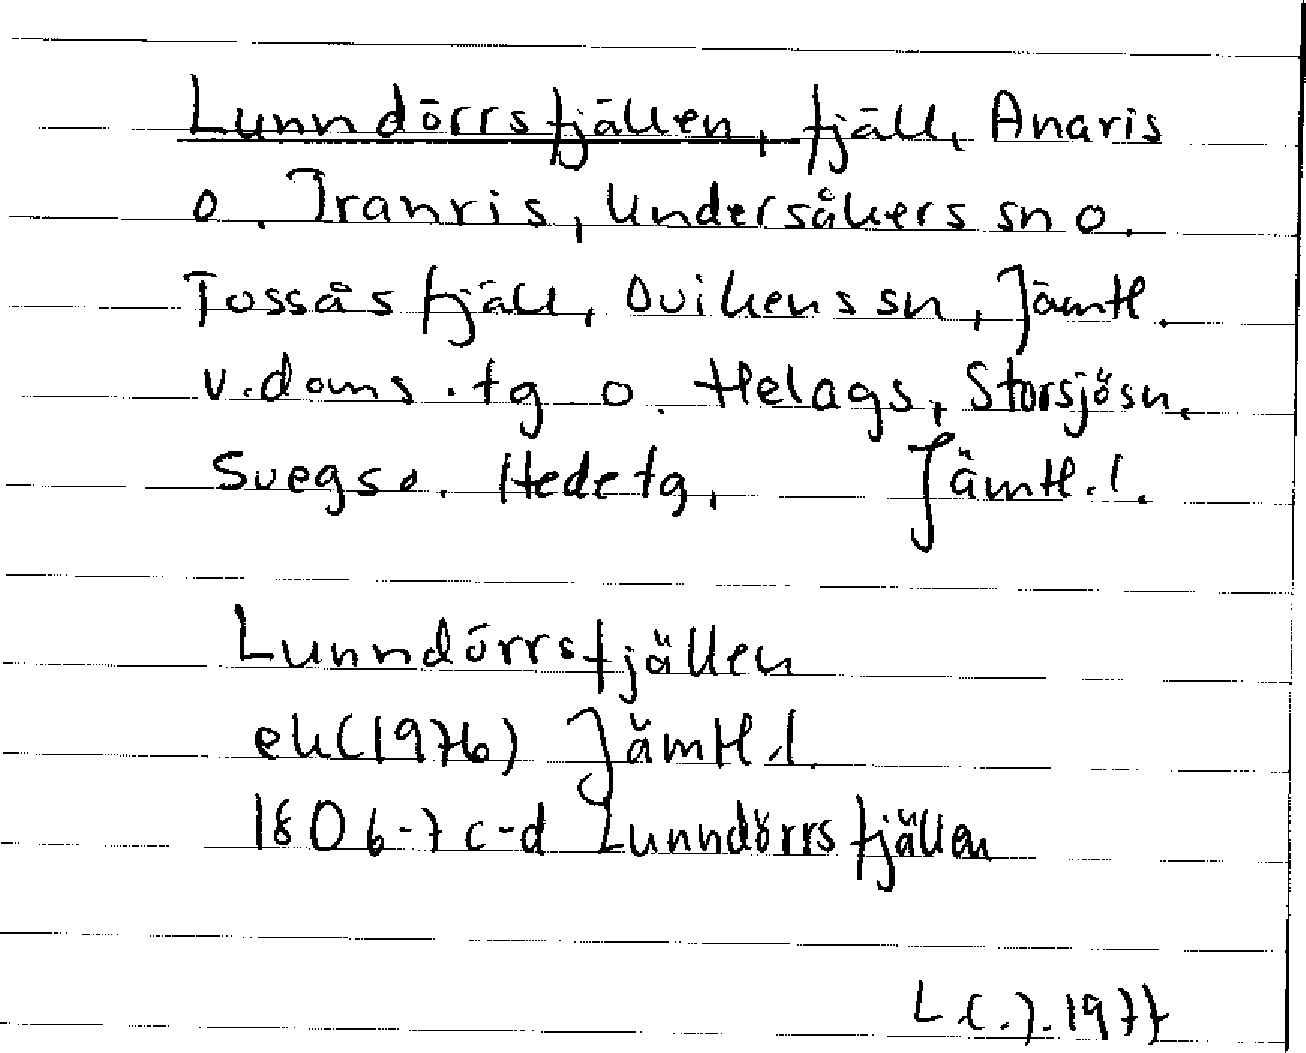 Lunndörrsfjällen, fjäll, Anaris
o. Tranris, Undersåkers sn o.
Tossåsfjäll, Ovikens sn, Jämtl.
v. doms. tg o. Helags, Storsjö sn,
Svegs o. Hede tg, Jämtl. l.
Lunndörrsfjällen
ek (1976) Jämtl. l.
180 6-7 c-d Lunndörrsfjällen
1977